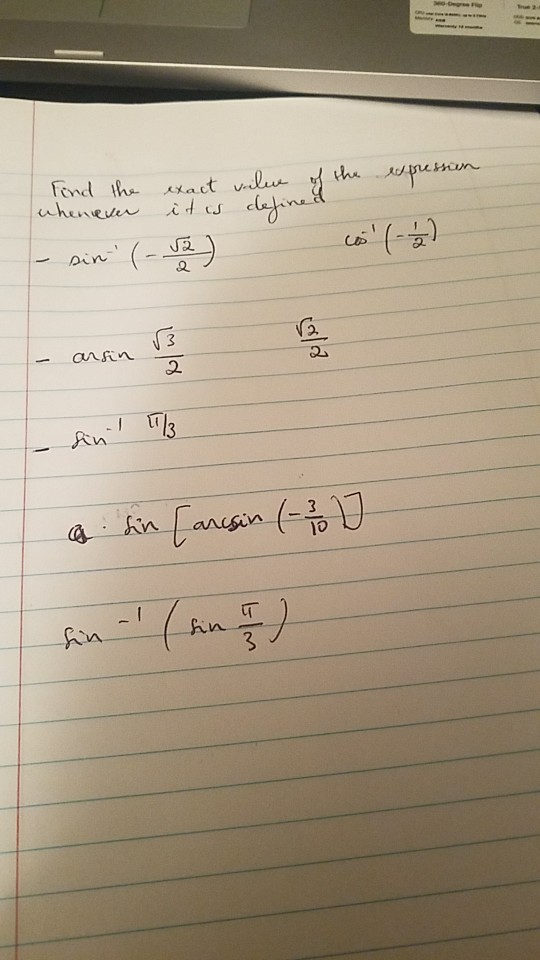 360-Degree Flip
Find the exact value of the expression
whenever it is defined
- sin⁻¹ (-√2/2) cos⁻¹ (-1/2)
- arsin √3/2 √2/2
- sin⁻¹ π/3
a: sin [arcsin (-3/10)]
sin⁻¹ (sin π/3)